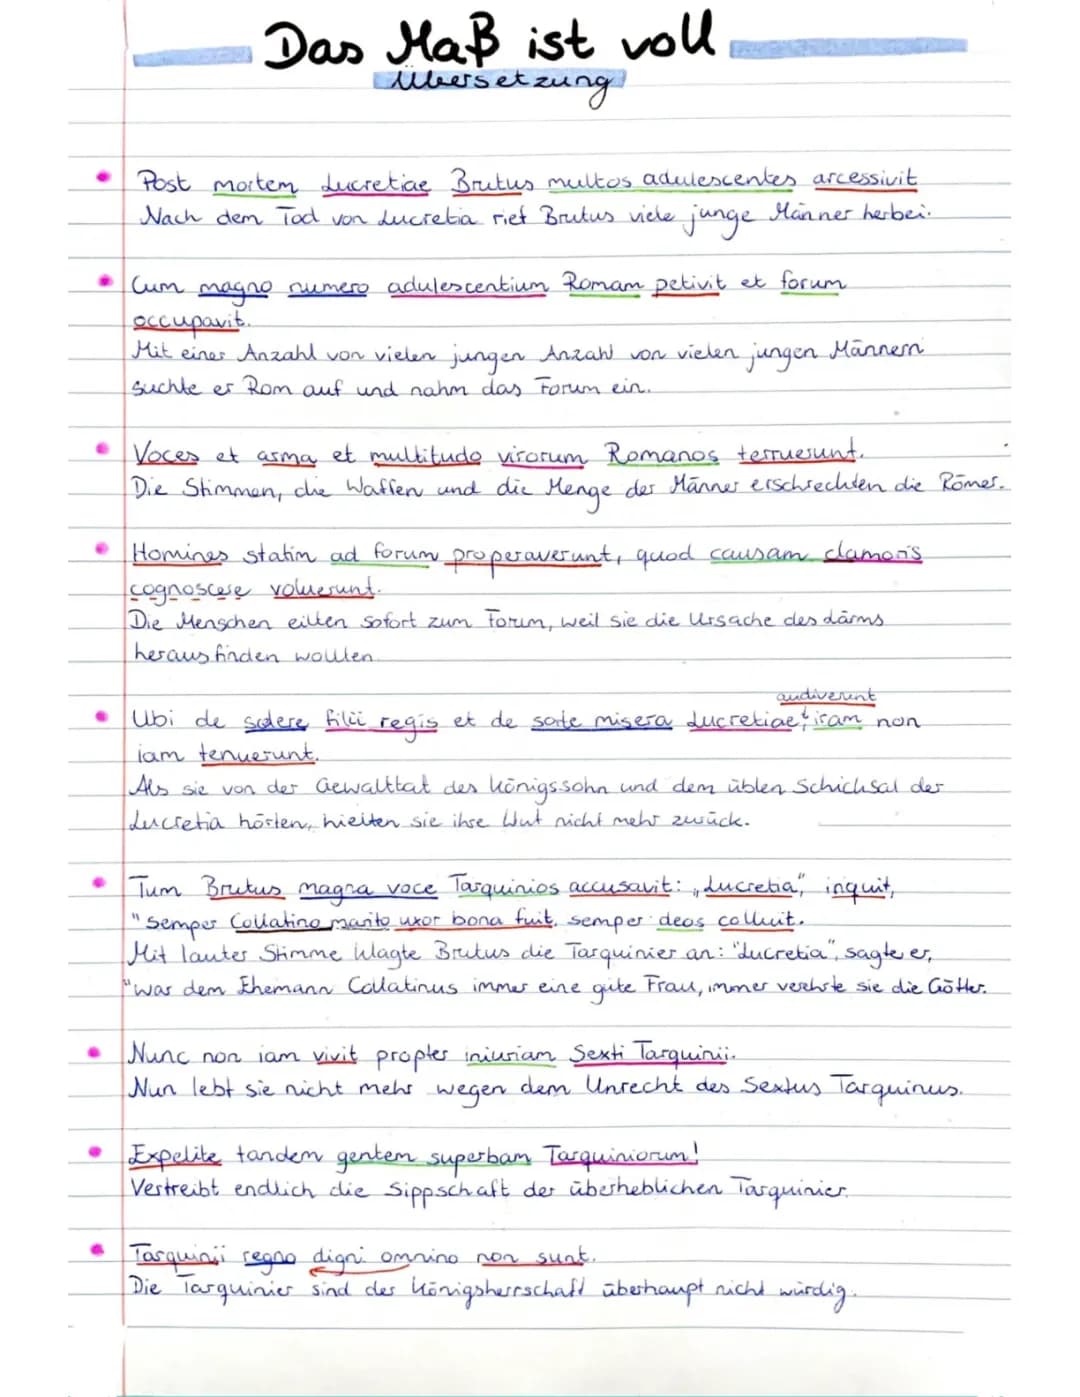 Das Maß ist voll
Übersetzung
Post mortem Lucretiae Brutus multos adulescentes arcessivit
Nach dem Tod von Lucretia rief Brutus viele junge Männer herbei.
Cum magno numero adulescentium Romam petivit et forum
occupavit.
Mit einer Anzahl von vielen jungen Anzahl von vielen jungen Männern
suchte er Rom auf und nahm das Forum ein.
Voces et arma et multitudo virorum Romanos terruerunt.
Die Stimmen, die Waffen und die Menge der Männer erschreckten die Römer.
Homines statim ad forum properaverunt, quod causam clamoris
cognoscere voluerunt.
Die Menschen eilten sofort zum Forum, weil sie die Ursache des Lärms
herausfinden wollten.
audiverunt
Ubi de scelere filii regis et de sorte misera Lucretiae, iram non
iam tenuerunt.
Als sie von der Gewalttat des Königssohn und dem üblen Schicksal der
Lucretia hörten, hielten sie ihre Wut nicht mehr zurück.
Tum Brutus magna voce Tarquinios accusavit: „Lucretia", inquit,
"semper Collatino marito uxor bona fuit, semper deos colluit.
Mit lauter Stimme klagte Brutus die Tarquinier an: "Lucretia", sagte er,
"war dem Ehemann Collatinus immer eine gute Frau, immer verehrte sie die Götter.
Nunc non iam vivit propter iniuriam Sexti Tarquinii.
Nun lebt sie nicht mehr wegen dem Unrecht des Sextus Tarquinus.
Expelite tandem gentem superbam Tarquiniorum!
Vertreibt endlich die Sippschaft der überheblichen Tarquinier.
Tarquinii regno digni omnino non sunt.
Die Tarquinier sind der Königsherrschaft überhaupt nicht würdig.